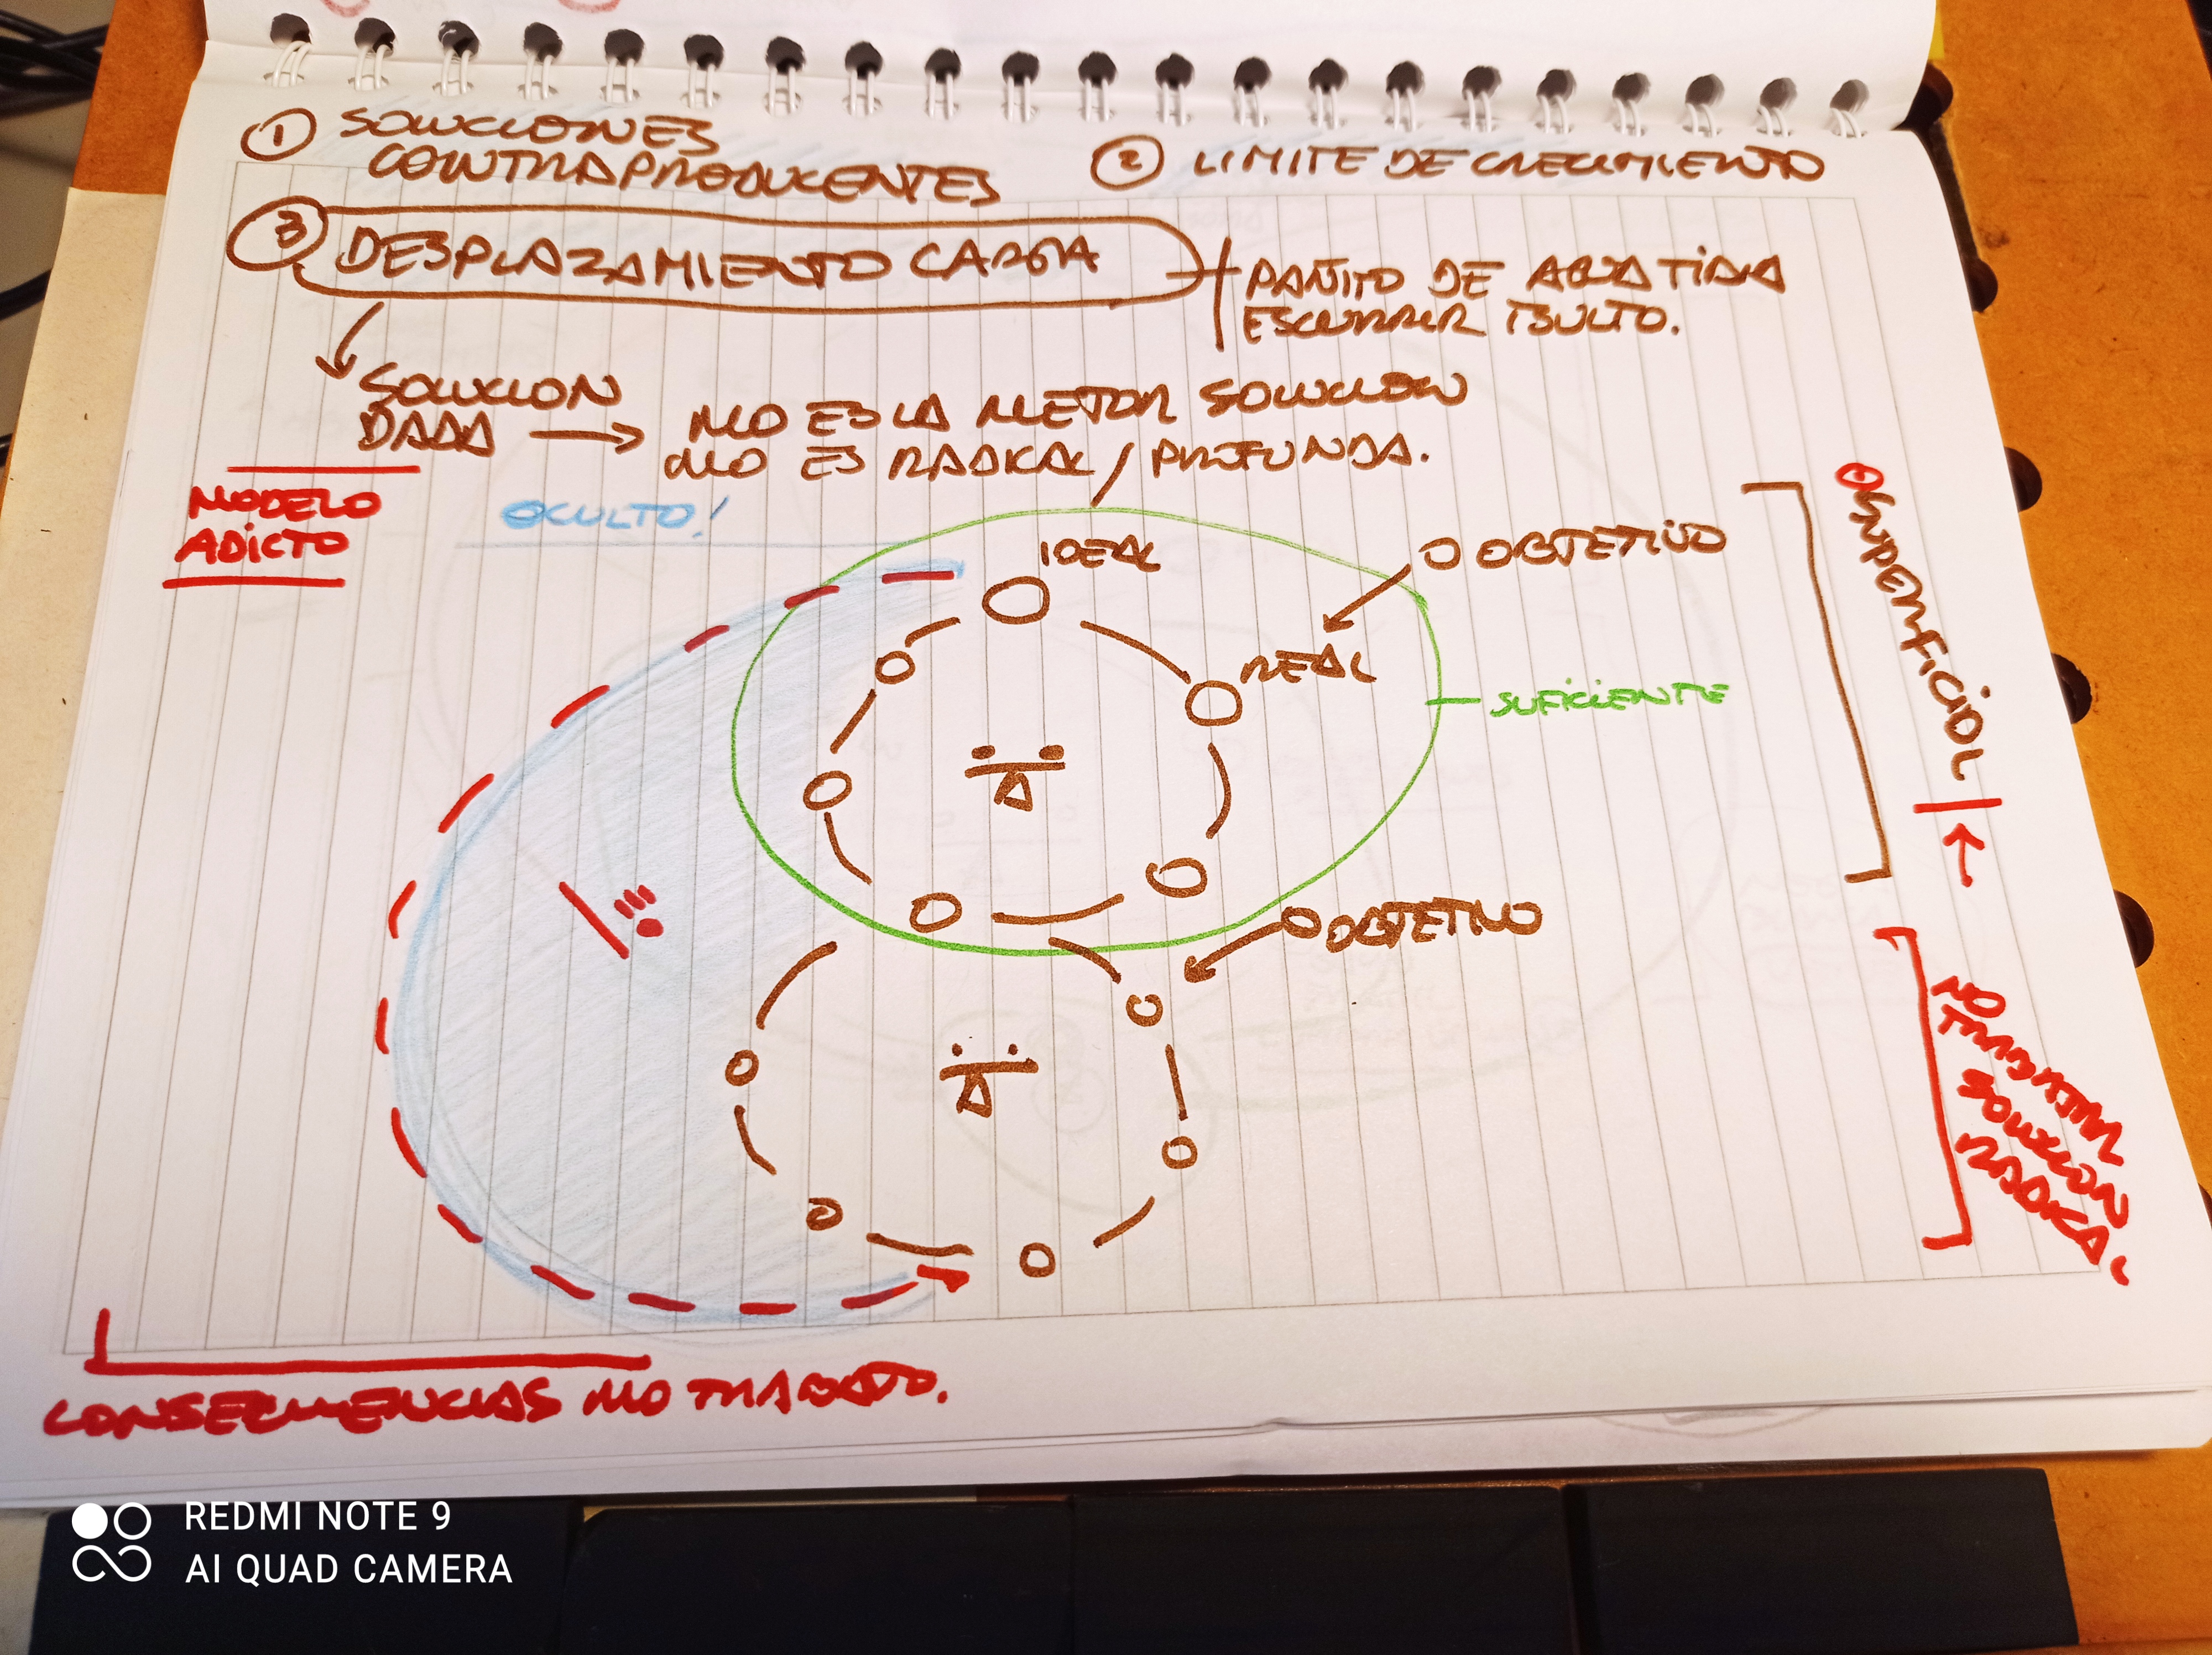 ① SOLUCIONES
CONTRAPRODUCENTES
② LIMITE DE CRECIMIENTO
③ DESPLAZAMIENTO CARGA
PAÑITO DE AGUA TIBIA
ESCURRIR BULTO.
SOLUCION
DADA → NO ES LA MEJOR SOLUCION
NO ES RADICAL / PROFUNDA.
MODELO
ADICTO
OCULTO!
IDEAL
OBJETIVO
REAL
SUFICIENTE
SUPERFICIAL
OBJETIVO
NO
TIENEN
SOLUCION
RADICAL
CONSECUENCIAS NO TRABAJO.
REDMI NOTE 9
AI QUAD CAMERA